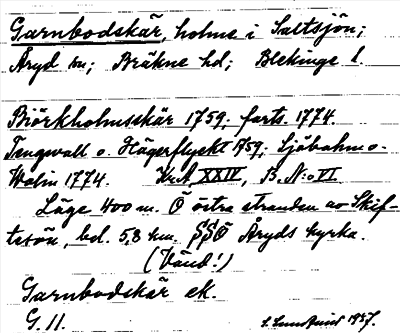 Garnbodskär, holme i Saltsjön;
Åryd sn; Bräkne hd; Blekinge l.
Björkholmsskär 1759; farts. 1774.
Tengwall o. Hägerflyckt 1759; Sjöbohm o.
Wolin 1774. KrA XXIV, B. N:o VI.
Läge 400 m. Ö östra stranden av Skif-
tesön, bel. 5,8 km. SSÖ Åryds kyrka.
(Vänd!)
Garnbodskär ek.
G. 11.
S. Lundquist 1937.